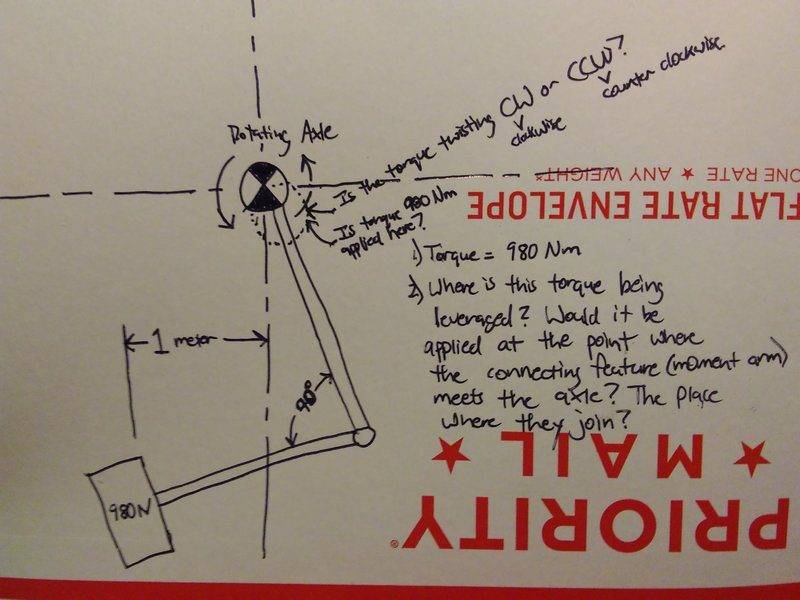 Rotating Axle
Is the torque twisting CW or CCW?
clockwise
counter clockwise
Is torque 980 Nm
applied here?
ONE RATE ★ ANY WEIGHT*
FLAT RATE ENVELOPE
1) Torque = 980 Nm
2) Where is this torque being
leveraged? Would it be
applied at the point where
the connecting feature (moment arm)
meets the axle? The place
where they join?
1 meter
90°
980N
★ MAIL ★
PRIORITY®